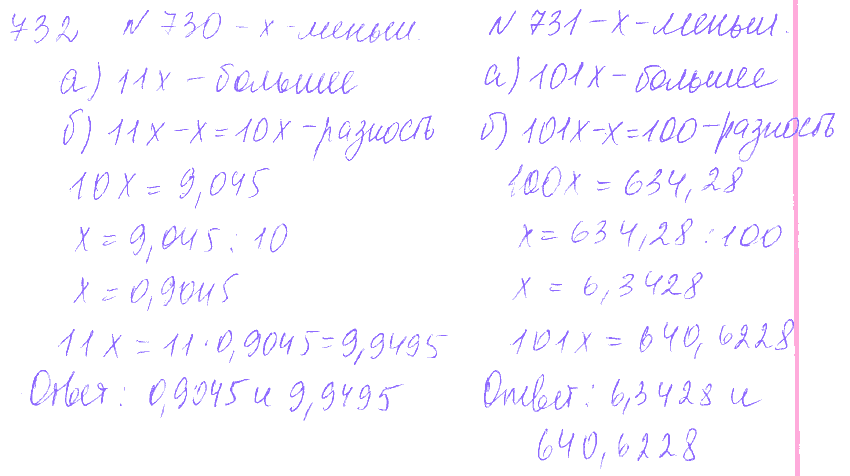 732 N 730 - х - меньш.
а) 11х - большее
б) 11х - х = 10х - разность
10х = 9,045
х = 9,045 : 10
х = 0,9045
11х = 11 · 0,9045 = 9,9495
Ответ: 0,9045 и 9,9495
N 731 - х - меньш.
а) 101х - большее
б) 101х - х = 100 - разность
100х = 634,28
х = 634,28 : 100
х = 6,3428
101х = 640,6228
Ответ: 6,3428 и
640,6228